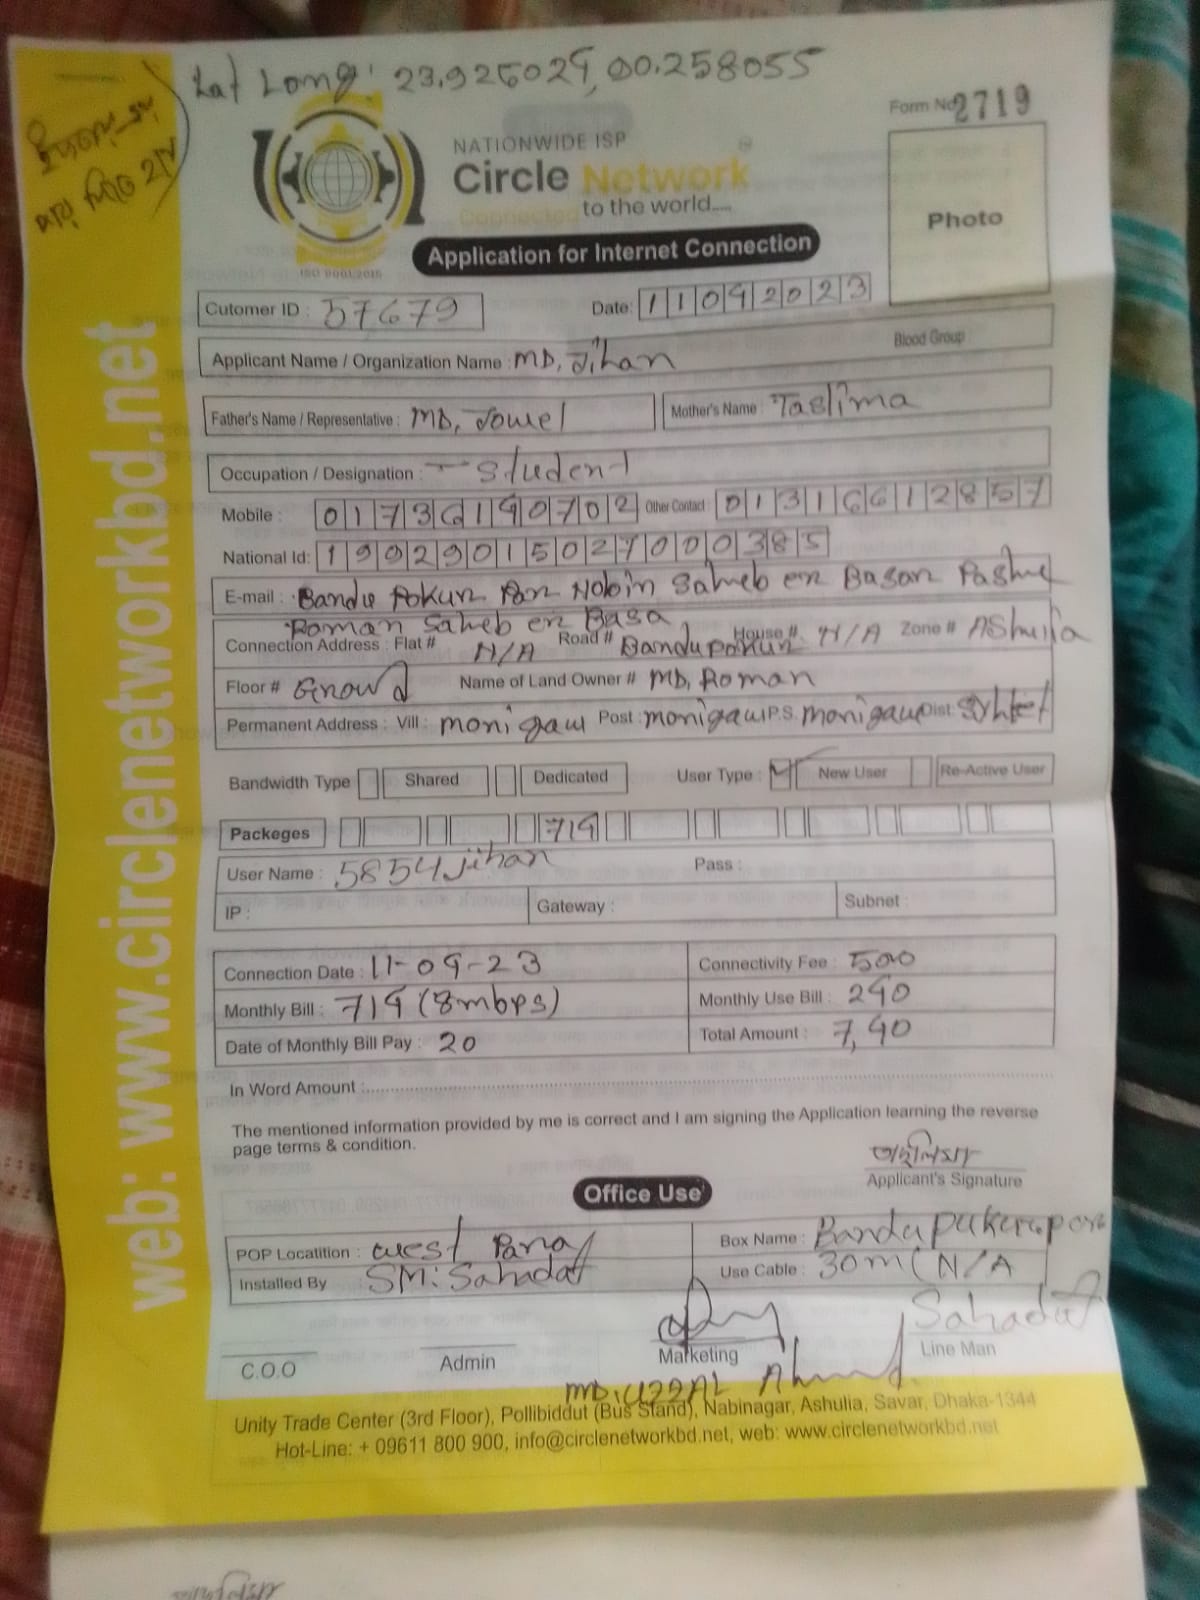 Lat Long: 23.926029, 90.258055
Form No 2719
NATIONWIDE ISP
Circle Network
Connected to the world....
ISO 9001:2015
Photo
Application for Internet Connection
Cutomer ID : 57679 Date: 11092023
Blood Group :
Applicant Name / Organization Name : MD, Jihan
Father's Name / Representative : MD, Jowel Mother's Name : Taslima
Occupation / Designation : Student
Mobile : 01736190702 Other Contact : 01316612857
National Id: 19929015027000385
E-mail : Bandu Pokur Par Nobin Saheb er Basar Pashe
Roman Saheb er Basa
Connection Address : Flat # N/A Road # Bandupokur House # N/A Zone # AShulia
Floor # Grownd Name of Land Owner # MD, Roman
Permanent Address : Vill : monigaw Post : monigaw P.S. monigaw Dist : Sylhet
Bandwidth Type Shared Dedicated User Type : New User Re-Active User
Packeges 719
User Name : 5854jihan Pass :
IP : Gateway : Subnet :
Connection Date : 11-09-23 Connectivity Fee : 500
Monthly Bill : 719 (8mbps) Monthly Use Bill : 290
Date of Monthly Bill Pay : 20 Total Amount : 7,90
In Word Amount :
The mentioned information provided by me is correct and I am signing the Application learning the reverse
page terms & condition.
Applicant's Signature
Office Use
POP Locatition : West Para Box Name : Bandupukurpar
Installed By SM: Sahadat Use Cable : 30m (N/A
Sahadat
C.O.O Admin Marketing Line Man
MD: UZZAL Ahmed
Unity Trade Center (3rd Floor), Pollibiddut (Bus Stand), Nabinagar, Ashulia, Savar, Dhaka-1344
Hot-Line: + 09611 800 900, info@circlenetworkbd.net, web: www.circlenetworkbd.net
web: www.circlenetworkbd.net